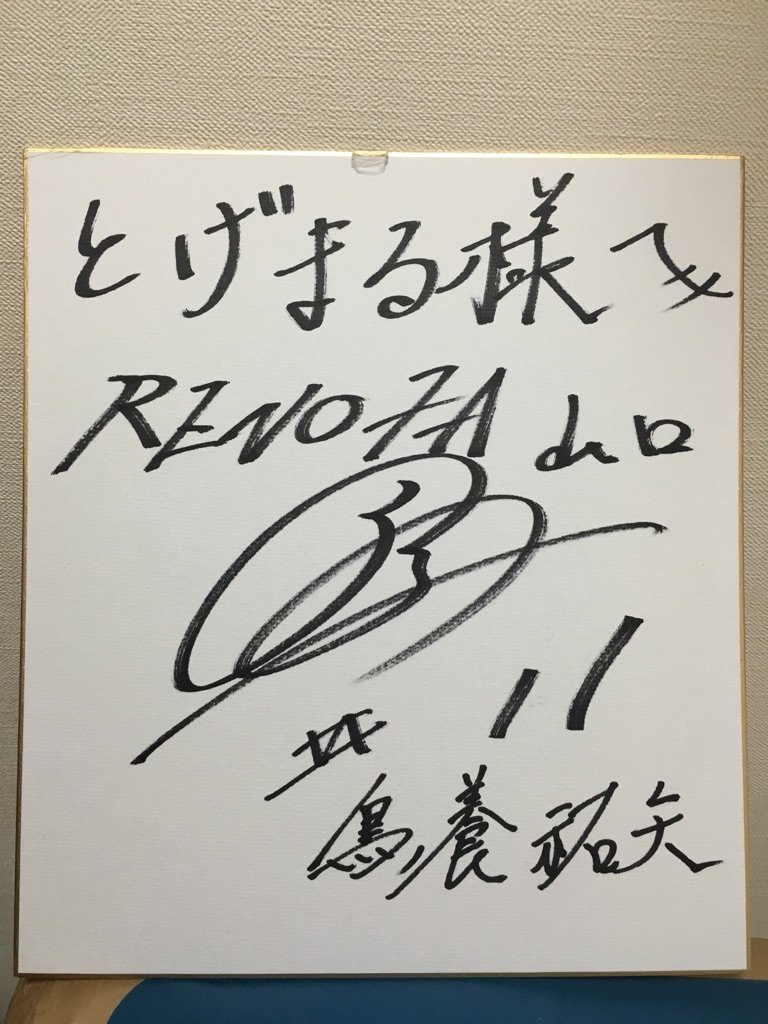 とげまる様へ
RENOFA 山口
11
# 鳥養祐矢